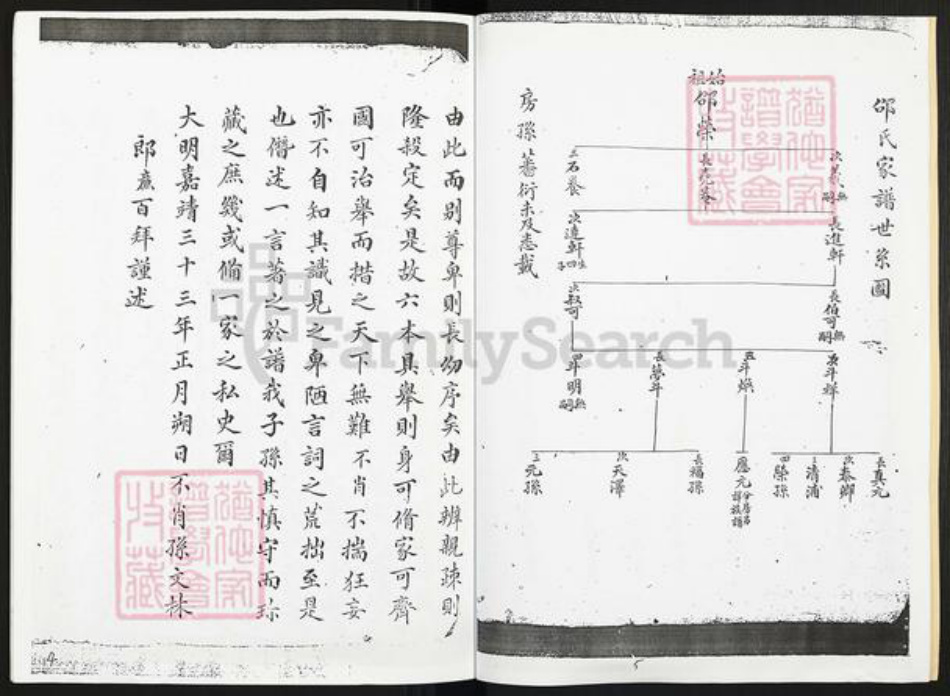 邵氏家譜世系圖
始祖
邵榮
長亢菴
次義無嗣
三石養
長進軒
次達軒生四子
長伯可無嗣
次叔可
次斗祥
五斗煥
長萬斗
四斗明無嗣
長真元
次泰鄉
三清浦
四榮孫
應元
長福孫
次天澤
三元孫
房孫蕃衍未及悉載
5
由此而别尊卑則長幼序矣由此辨親疎則
隆殺定矣是故六本具舉則身可脩家可齊
國可治舉而措之天下無難不肖不揣狂妄
亦不自知其識見之卑陋言詞之荒拙至是
也僭述一言著之於譜我子孫其慎守而珎
藏之庶幾或備一家之私史爾
大明嘉靖三十三年正月朔日不肖孫文林
郎 百拜謹述
FamilySearch